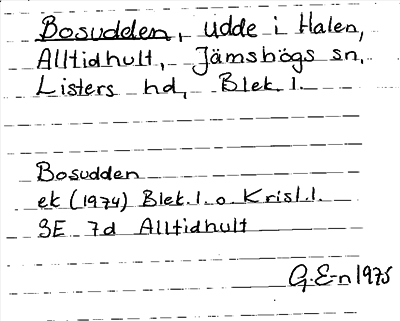 Bosudden, udde i Halen,
Alltidhult, Jämshögs sn,
Listers hd, Blek. l.
Bosudden
ek (1974) Blek. l. o Krisl. l.
3E 7d Alltidhult
G.E-n 1975